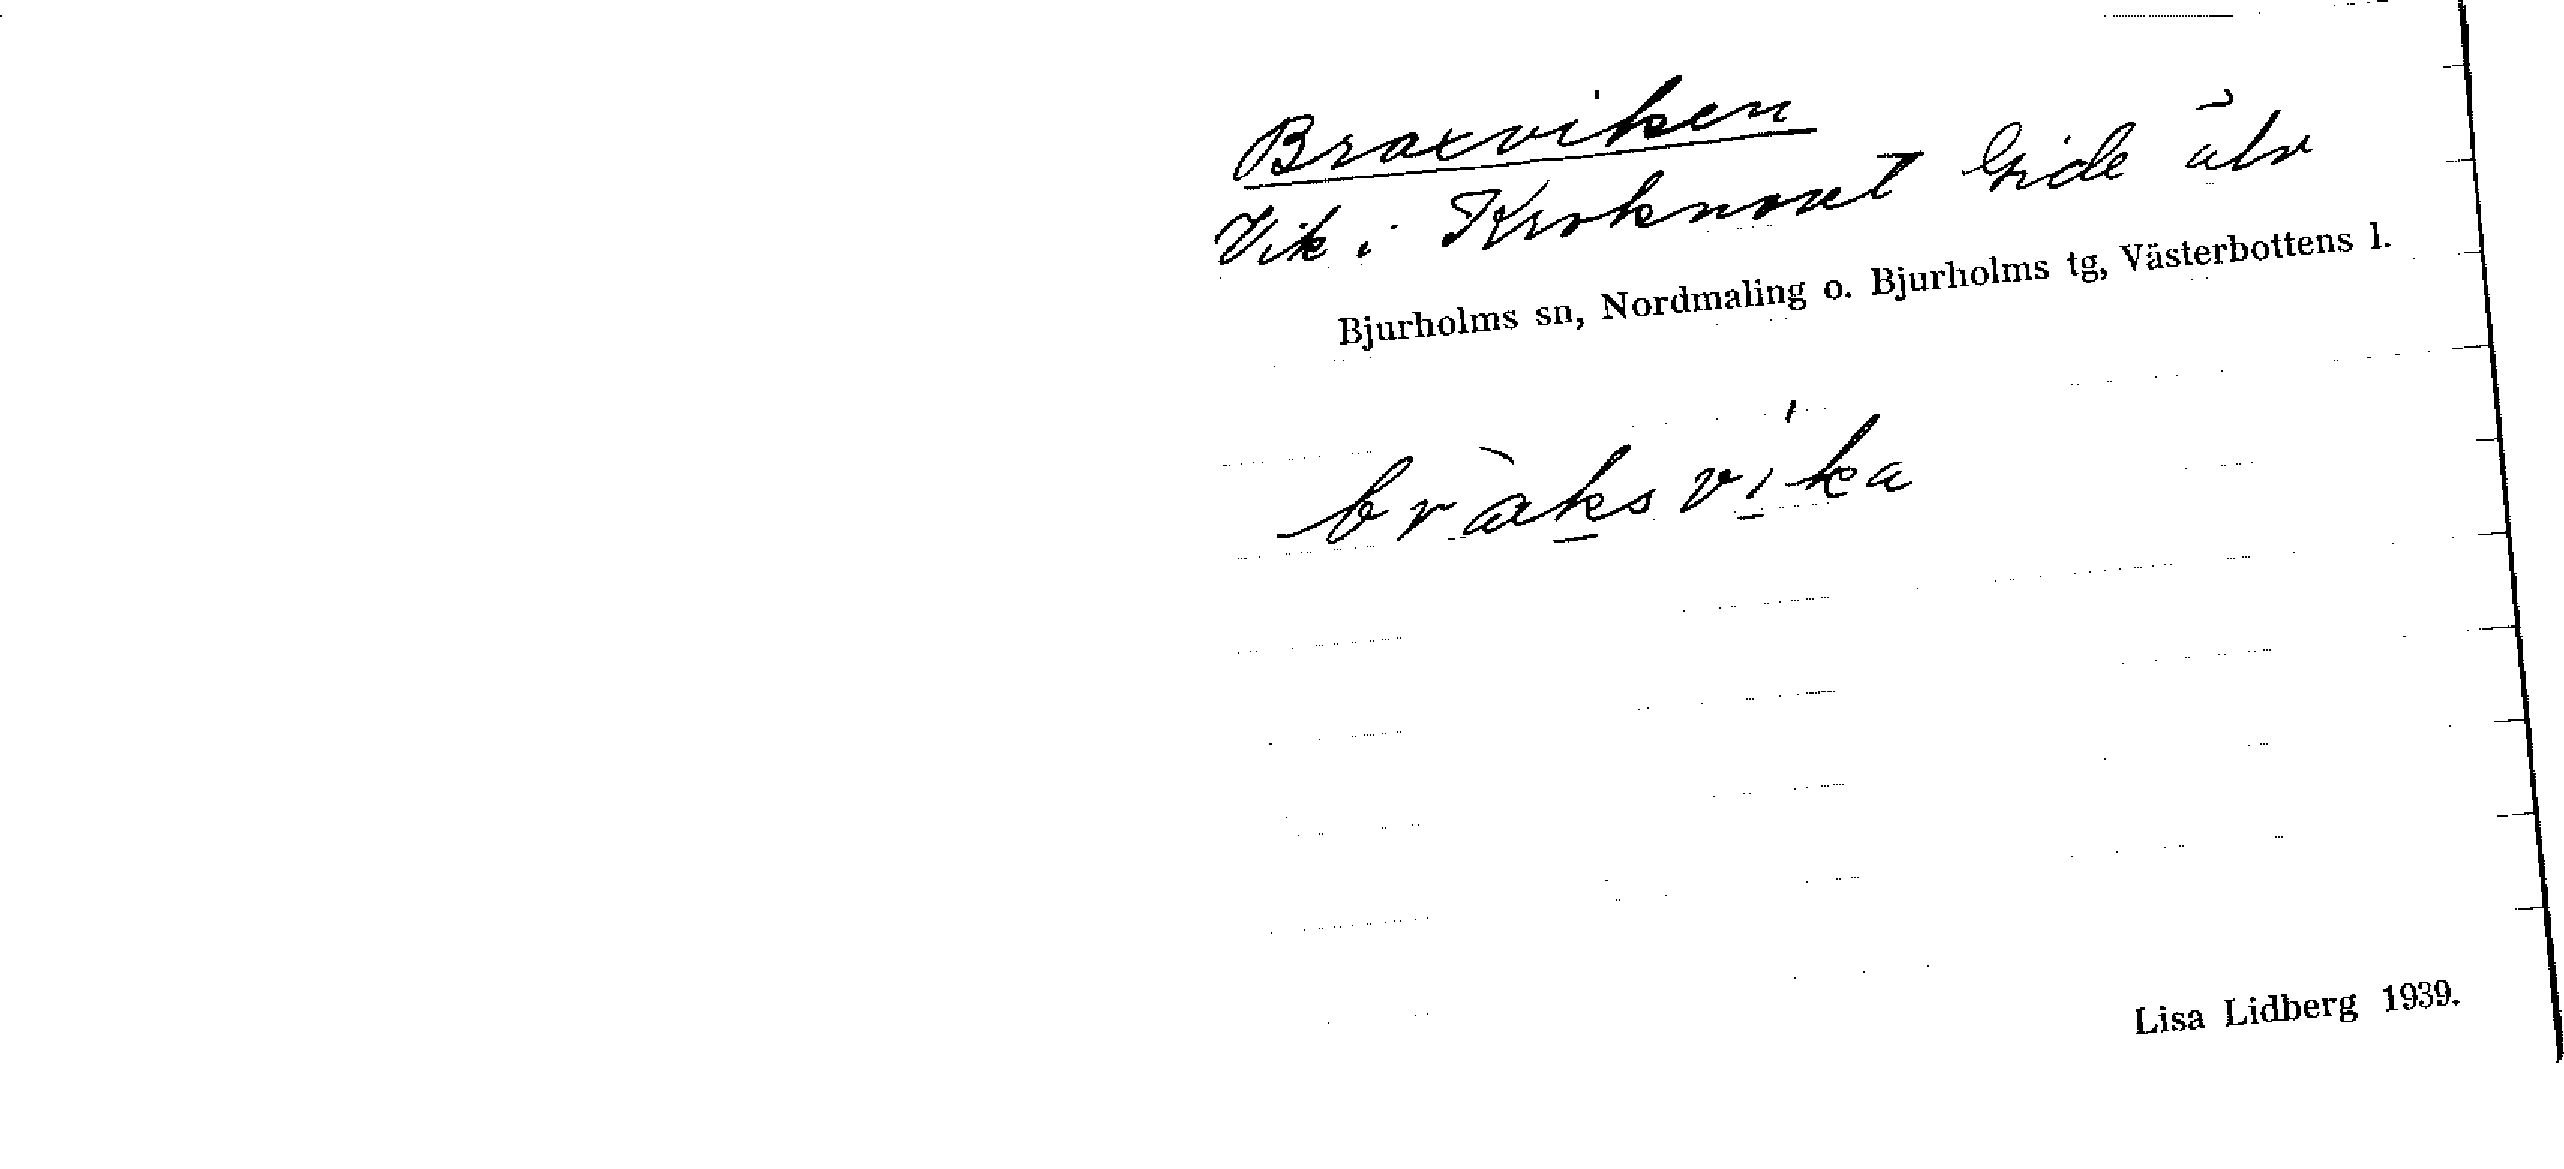 Braxviken
Vik i Kroknoret Gide älv
Bjurholms sn, Nordmaling o. Bjurholms tg, Västerbottens l.
bràksvi̱ka
Lisa Lidberg 1939.